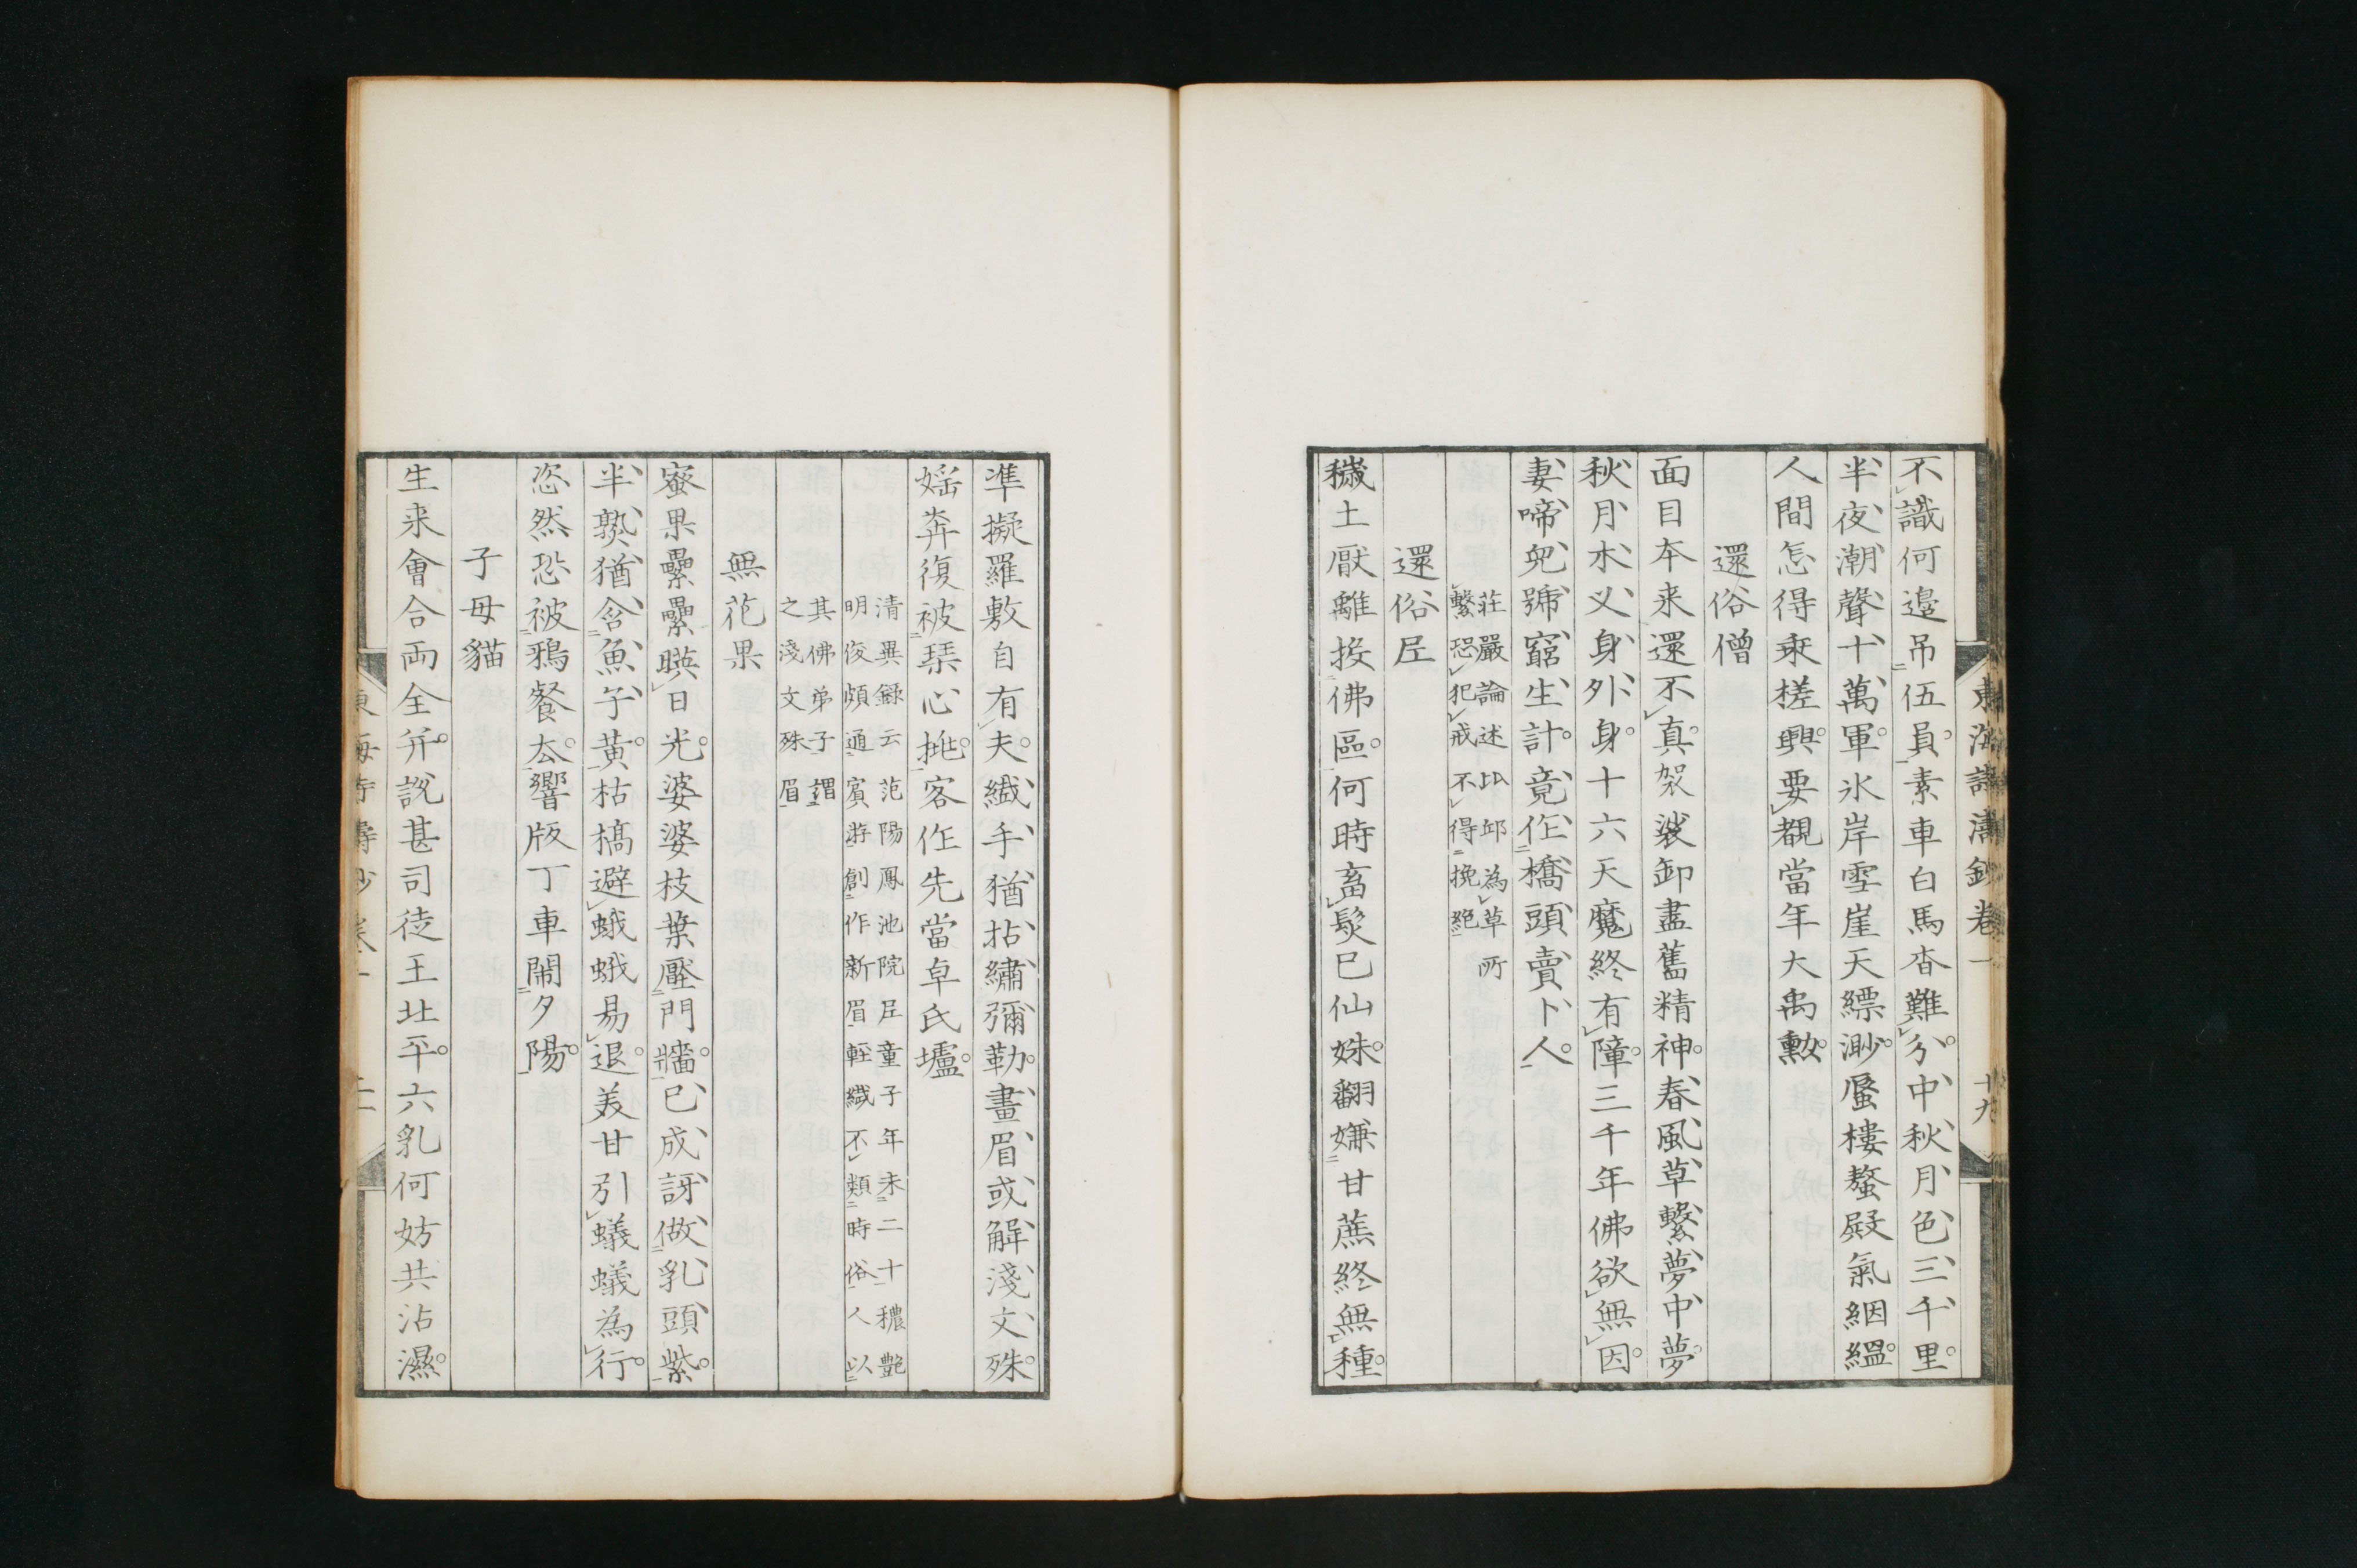 不識何邉吊伍員素車白馬杳難分中秋月色三千里
半夜潮聲十萬軍氷岸雪崖天縹渺蜃樓鼇殿氣絪緼
人間怎得乗槎興要覩當年大禹勲
還俗僧
面目本来還不真袈裟卸盡舊精神春風草繫夢中夢
秋月水乂身外身十六天魔終有障三千年佛欲無因
妻啼兒號窮生計竟作橋頭賣卜人
荘嚴論述比邱為草所
繫恐犯戒不得挽絕
還俗尼
穢土厭離投佛區何時畜髮已仙姝翻嫌甘蔗終無種
準擬羅敷自有夫纎手猶拈繡彌勒畫眉或解淺文殊
婬奔復被琹心挑客作先當卓氏壚
清異錄云范陽鳳池院尼童子年未二十穠艶
明俊頗通賓游創作新眉輕纎不類時俗人以
其佛弟子謂
之淺文殊眉
無花果
蜜果纍纍暎日光婆婆枝葉壓門牆已成訝做乳頭紫
半熟猶含魚子黄枯槁避蛾蛾易退美甘引蟻蟻為行
恣然恐被鴉餐去響版丁車閙夕陽
子母貓
生来會合両全并說甚司徒王北平六乳何妨共沾濕